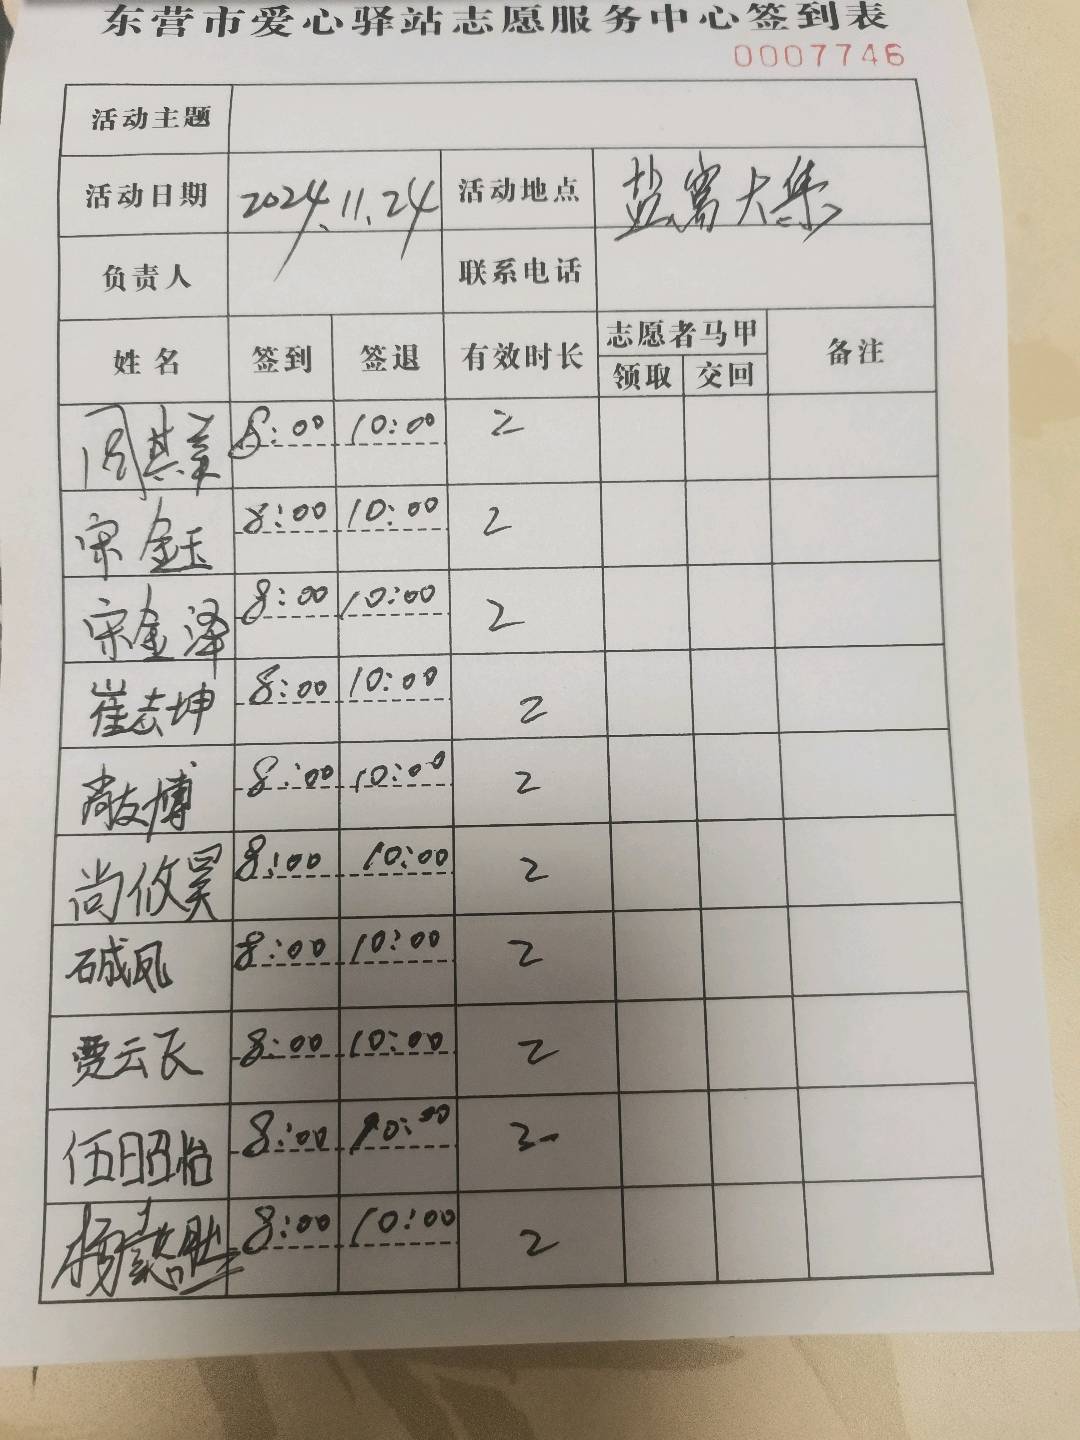 东营市爱心驿站志愿服务中心签到表
0007746
活动主题
活动日期 2024.11.24 活动地点 盐窝大集
负责人 联系电话
姓名 签到 签退 有效时长 志愿者马甲 备注
领取 交回
周其美 8:00 10:00 2
宋金玉 8:00 10:00 2
宋金泽 8:00 10:00 2
崔志坤 8:00 10:00 2
尚友博 8:00 10:00 2
尚攸昊 8:00 10:00 2
8:00 10:00 2
贾云飞 8:00 10:00 2
伍昭怡 8:00 10:00 2
杨 8:00 10:00 2